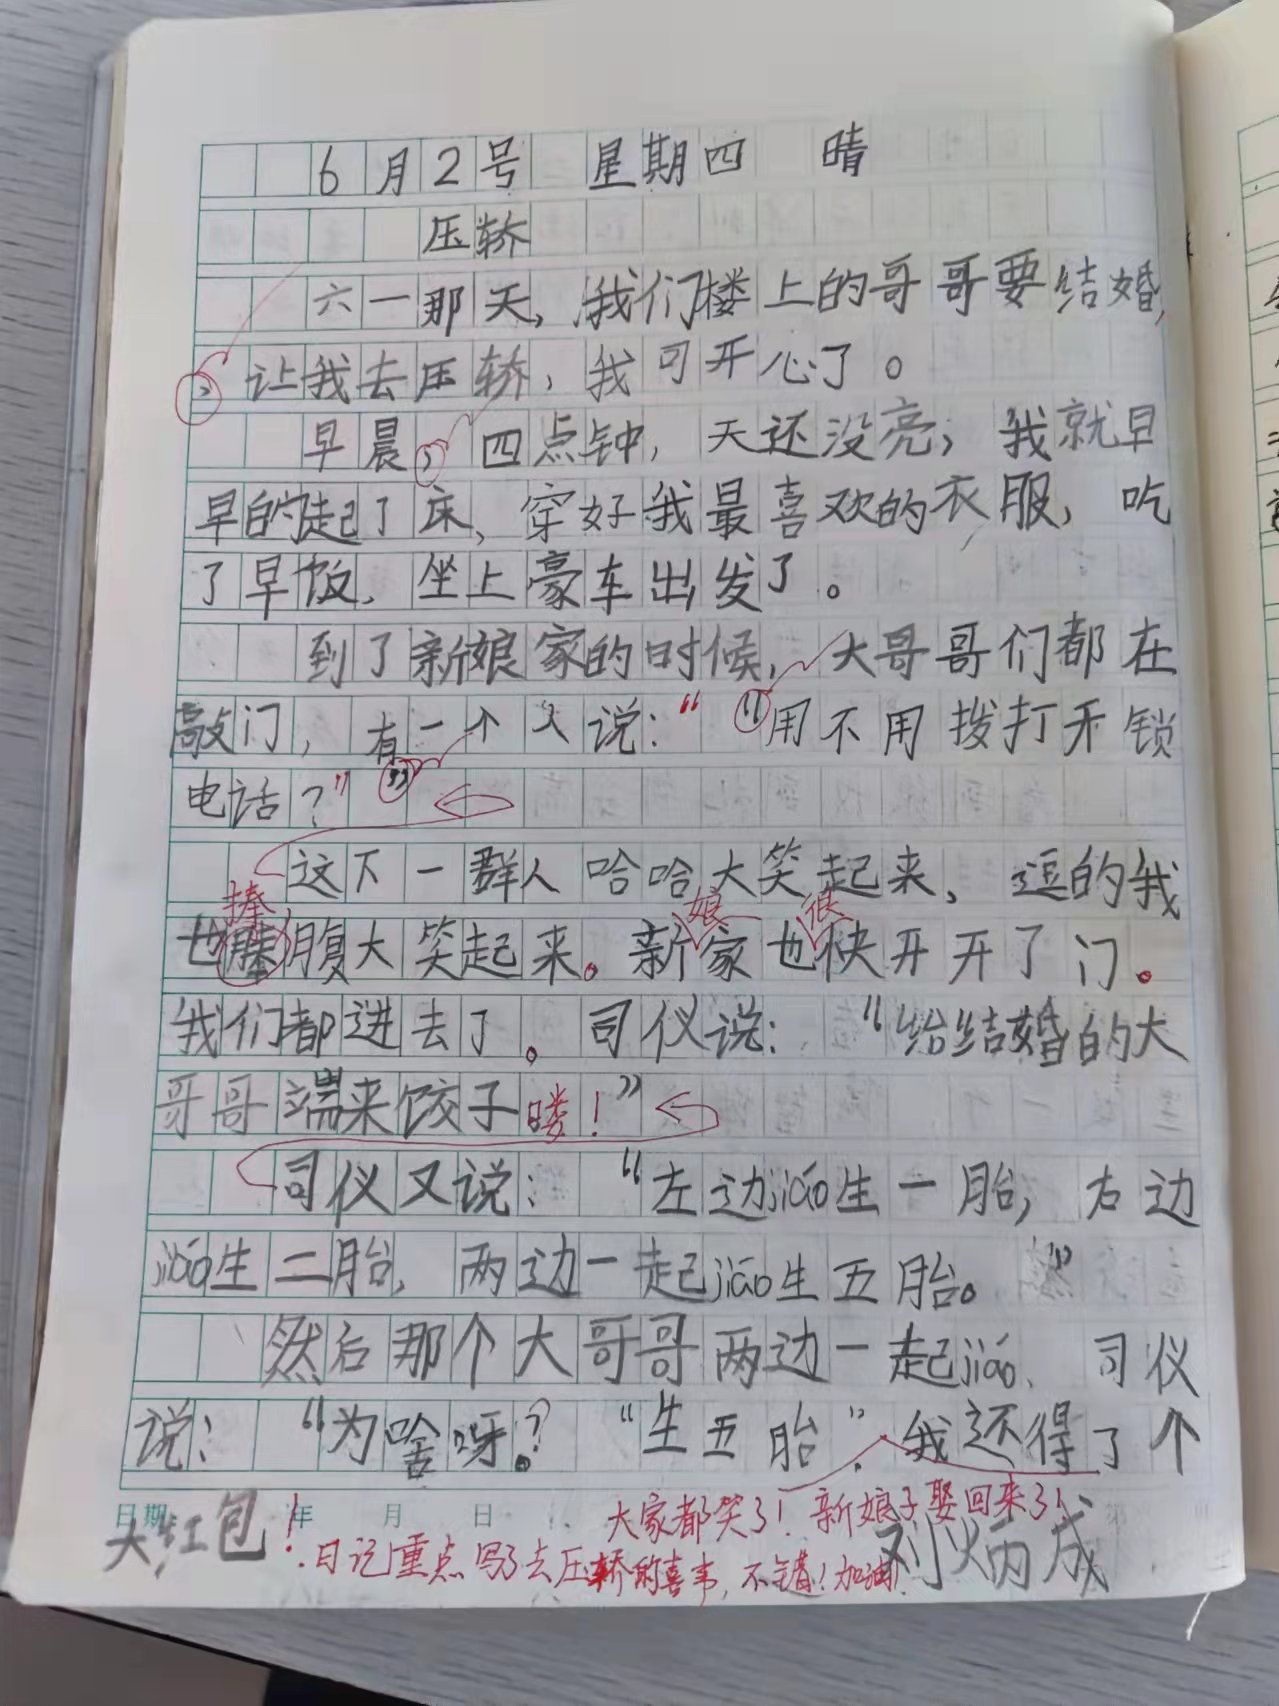 6月2号 星期四 晴
压轿
六一那天，我们楼上的哥哥要结婚，
让我去压轿，我可开心了。
早晨，四点钟，天还没亮，我就早
早的起了床，穿好我最喜欢的衣服，吃
了早饭，坐上豪车出发了。
到了新娘家的时候，大哥哥们都在
敲门，有一个人说：“用不用拨打开锁
电话？”
这下一群人哈哈大笑起来，逗的我
捧 娘 很
也腹大笑起来。新家也快开开了门。
我们都进去了。司仪说：“给结婚的大
哥哥端来饺子喽！”
司仪又说：“左边jiáo生一胎，右边
jiáo生二胎，两边一起jiáo生五胎。”
然后那个大哥哥两边一起jiáo，司仪
说：“为啥呀？”“生五胎”。我还得了个
大家都笑了！新娘子娶回来了！
日期 年 月 日
大红包！
日记重点写了去压轿的喜事，不错！加油！
刘炳成